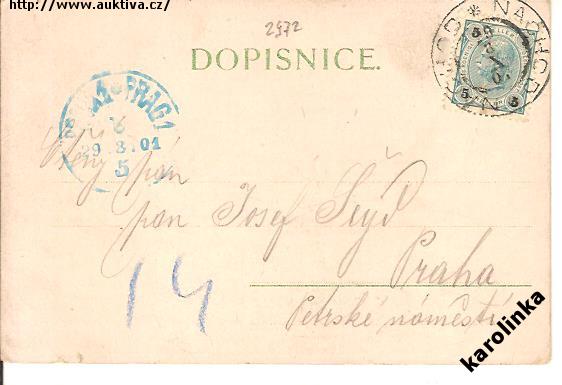 http://www.auktiva.cz/
2972
DOPISNICE.
NACHOD
PRAG 1
29 8 01
5
5 5
pán
pan Josef Šejd
Praha
Petrské náměstí
14
karolinka